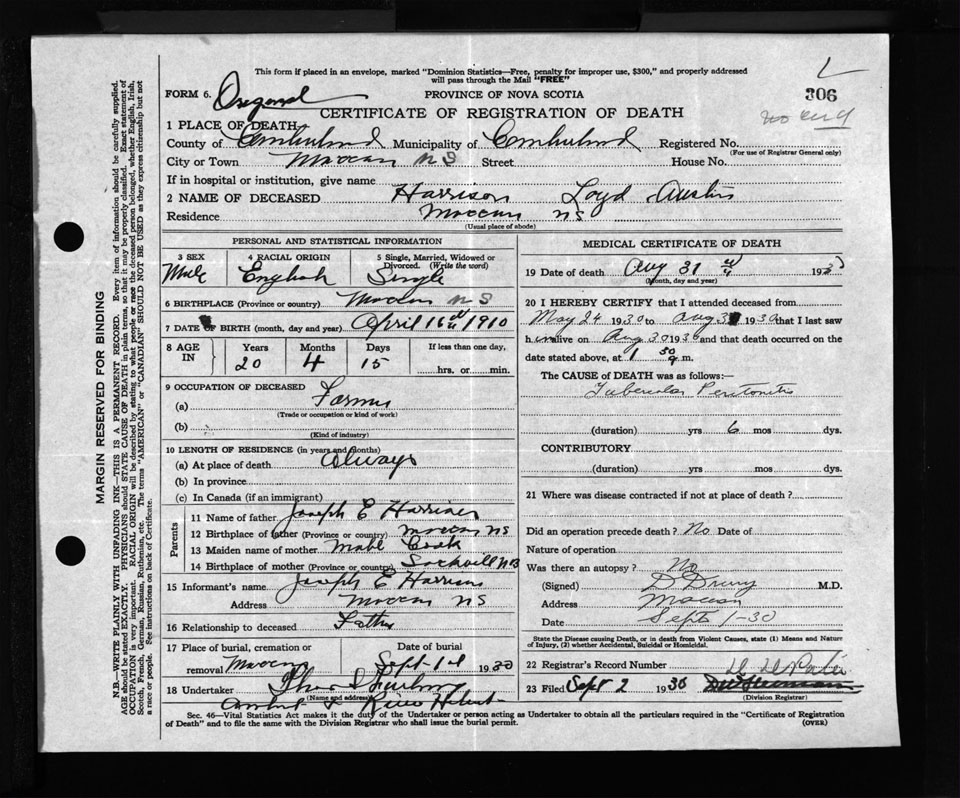 This form if placed in an envelope, marked "Dominion Statistics—Free, penalty for improper use, $300," and properly addressed
will pass through the Mail "FREE"
FORM 6. PROVINCE OF NOVA SCOTIA 306
CERTIFICATE OF REGISTRATION OF DEATH
1 PLACE OF DEATH
County of Municipality of Registered No.
(For use of Registrar General only)
City or Town Maccan N S Street House No.
If in hospital or institution, give name
2 NAME OF DECEASED Harrison Loyd Austin
Residence Maccan NS
(Usual place of abode)
PERSONAL AND STATISTICAL INFORMATION
3 SEX 4 RACIAL ORIGIN 5 Single, Married, Widowed or
Divorced. (Write the word)
Male English Single
6 BIRTHPLACE (Province or country) Maccan N S
7 DATE OF BIRTH (month, day and year) April 16 1910
8 AGE IN Years Months Days If less than one day,
20 4 15 hrs. or min.
9 OCCUPATION OF DECEASED
(a) Farmer
(Trade or occupation or kind of work)
(b)
(Kind of industry)
10 LENGTH OF RESIDENCE (in years and months)
(a) At place of death Always
(b) In province
(c) In Canada (if an immigrant)
Parents
11 Name of father Joseph E Harrison
12 Birthplace of father (Province or country) Maccan NS
13 Maiden name of mother Cook
14 Birthplace of mother (Province or country) NB
15 Informant's name Joseph E Harrison
Address Maccan NS
16 Relationship to deceased Father
17 Place of burial, cremation or Date of burial
removal Maccan Sept 1 1930
18 Undertaker
(Name and address)
MEDICAL CERTIFICATE OF DEATH
19 Date of death Aug 31
(Month, day and year)
20 I HEREBY CERTIFY that I attended deceased from
May 24 1930 to Aug 1930 that I last saw
h alive on Aug 30 1930 and that death occurred on the
date stated above, at 1 50 m.
The CAUSE of DEATH was as follows:—
Tubercular Peritonitis
(duration) yrs 6 mos dys.
CONTRIBUTORY
(duration) yrs mos dys.
21 Where was disease contracted if not at place of death?
Did an operation precede death? No Date of
Nature of operation
Was there an autopsy? No
(Signed) D Drury M.D.
Address Maccan
Date Sept 1-30
State the Disease causing Death, or in death from Violent Causes, state (1) Means and Nature
of Injury, (2) whether Accidental, Suicidal or Homicidal.
22 Registrar's Record Number
23 Filed Sept 2 1930
(Division Registrar)
Sec. 46—Vital Statistics Act makes it the duty of the Undertaker or person acting as Undertaker to obtain all the particulars required in the "Certificate of Registration
of Death" and to file the same with the Division Registrar who shall issue the burial permit. (OVER)
MARGIN RESERVED FOR BINDING
N.B.—WRITE PLAINLY WITH UNFADING INK—THIS IS A PERMANENT RECORD. Every item of information should be carefully supplied.
AGE should be stated EXACTLY. PHYSICIANS should STATE CAUSE OF DEATH in plain terms, so that it may be properly classified. Exact statement of
OCCUPATION is very important. RACIAL ORIGIN will be described by stating to what people or race the deceased person belonged, whether English, Irish,
Scotch, French, German, Russian, Ruthenian, etc. The terms "AMERICAN" or "CANADIAN" SHOULD NOT BE USED as they express citizenship but not
a race or people. See instructions on back of Certificate.